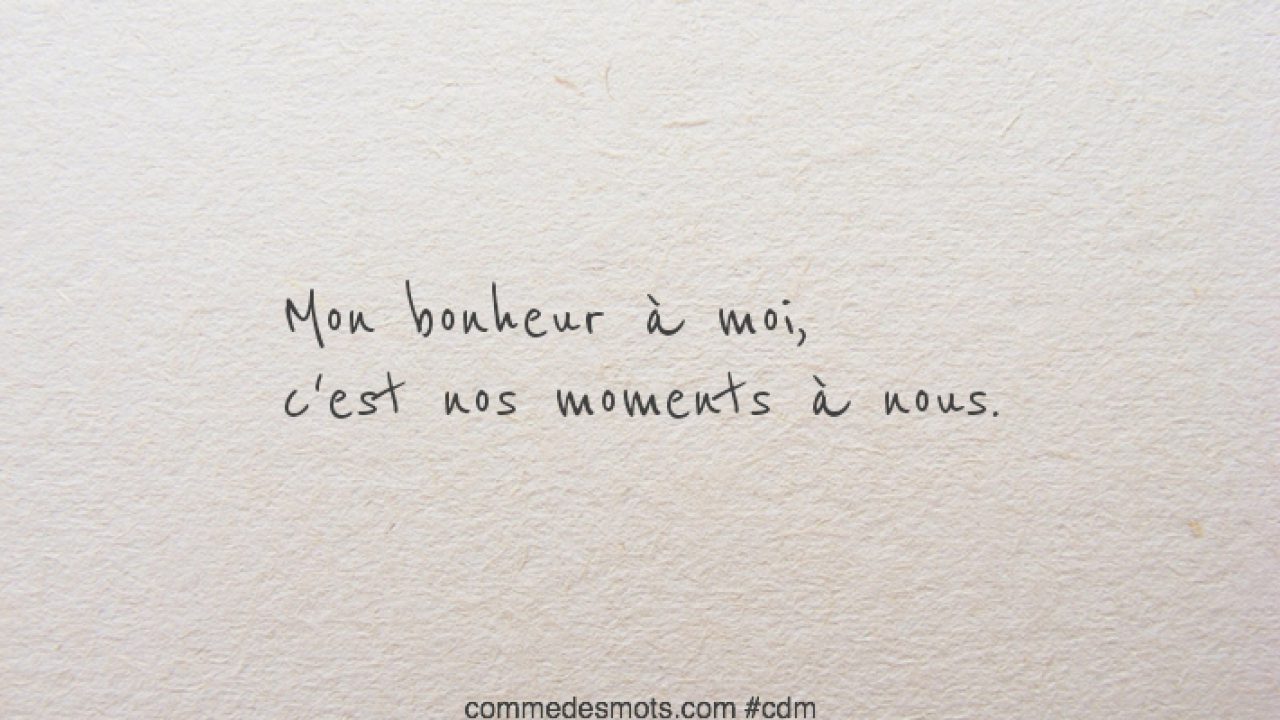 Mon bonheur à moi,
c'est nos moments à nous.
commedesmots.com #cdm